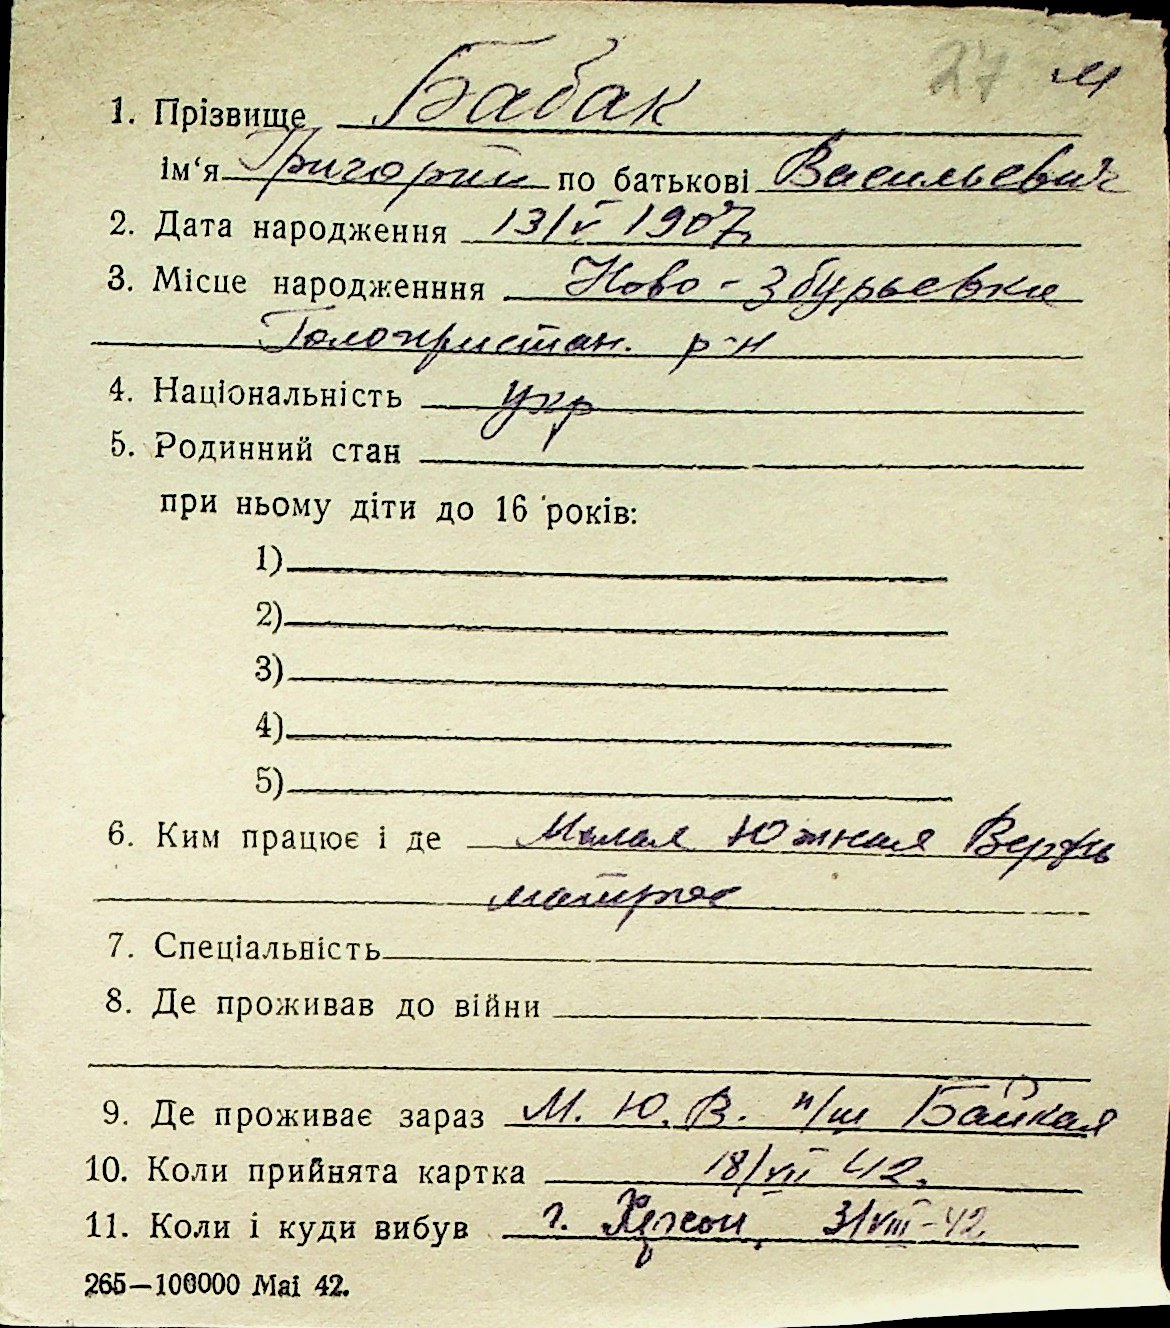 27 М
1. Прізвище Бабак
ім‘я Григорий по батькові Васильевич
2. Дата народження 13/V 1907
3. Місце народженння Ново-Збурьевка
Голопристан. р-н
4. Національність укр
5. Родинний стан
при ньому діти до 16 років:
1)
2)
3)
4)
5)
6. Ким працює і де Малая Южная Верфь
матрос
7. Спеціальність
8. Де проживав до війни
9. Де проживає зараз М. Ю. В. п/ш Байкал
10. Коли прийнята картка 18/VII 42.
11. Коли і куди вибув г. Херсон, 3/VIII-42
265—100000 Mai 42.